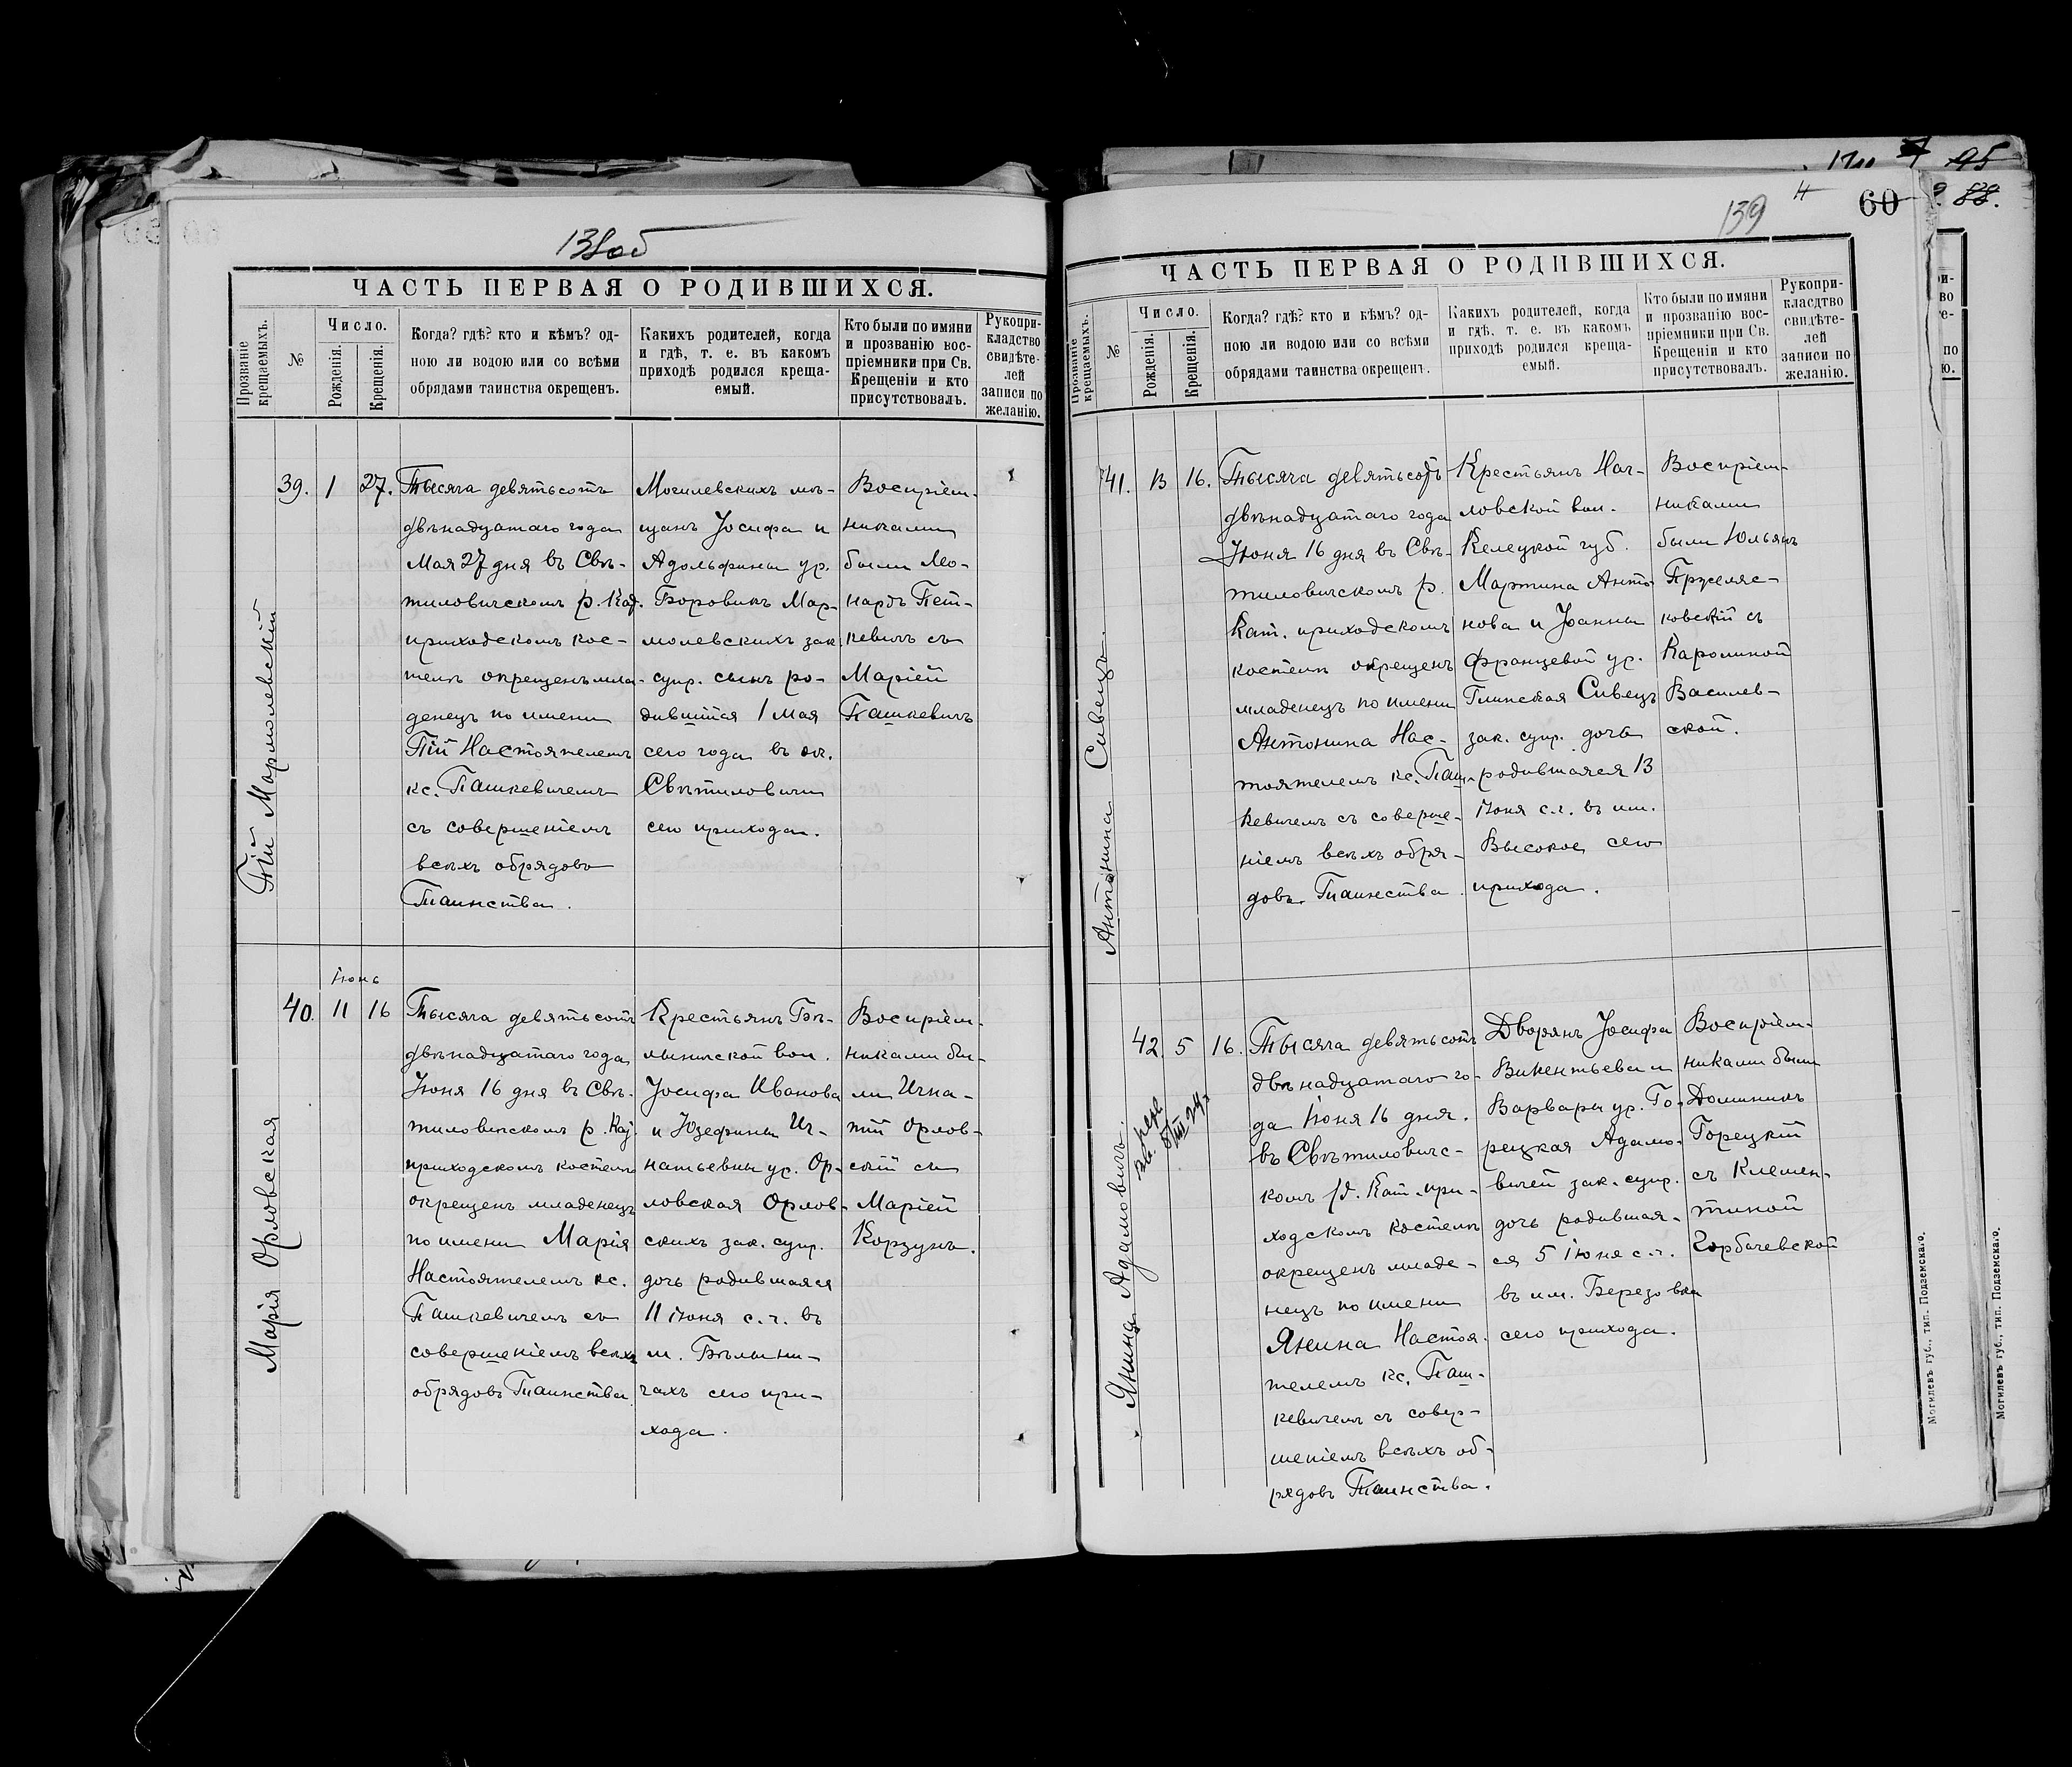 138об
ЧАСТЬ ПЕРВАЯ О РОДИВШИХСЯ.
Прозваніе крещаемыхъ.
№
Число.
Рожденія.
Крещенія.
Когда? гдѣ? кто и кѣмъ? од-
ною ли водою или со всѣми
обрядами таинства окрещенъ.
Какихъ родителей, когда
и гдѣ, т. е. въ какомъ
приходѣ родился креща-
емый.
Кто были по имяни
и прозванію вос-
пріемники при Св.
Крещеніи и кто
присутствовалъ.
Рукопри-
кладство
свидѣте-
лей
записи по
желанію.
Пій Мармолевскій
39.
1
27.
Тысяча девятьсотъ
двѣнадцатаго года
Мая 27 дня въ Свѣ-
тиловичскомъ р. Кат.
приходскомъ кос-
телѣ окрещенъ мла-
денецъ по имени
Пій Настоятелемъ
кс. Пашкевичемъ
съ совершеніемъ
всѣхъ обрядовъ
Таинства.
Могилевскихъ мѣ-
щанъ Іосифа и
Адольфины ур.
Боровикъ Мар-
молевскихъ зак.
супр. сынъ ро-
дившійся 1 Мая
сего года въ ок.
Свѣтиловичи
сего прихода.
Воспріем-
никами
были Лео-
нардъ Пет-
кевичъ съ
Маріей
Пашкевичъ
Марія Орловская
Іюнь
40.
11
16
Тысяча девятьсотъ
двѣнадцатаго года
Іюня 16 дня въ Свѣ-
тиловичскомъ р. Кат.
приходскомъ костелѣ
окрещенъ младенецъ
по имени Марія
Настоятелемъ кс.
Пашкевичемъ съ
совершеніемъ всѣхъ
обрядовъ Таинства.
Крестьянъ Бѣ-
лыничской вол.
Іосифа Иванова
и Юзефины Иг-
натьевны ур. Ор-
ловская Орлов-
скихъ зак. супр.
дочь родившаяся
11 Іюня с. г. въ
м. Бѣлыни-
чахъ сего при-
хода.
Воспріем-
никами бы-
ли Игна-
тій Орлов-
скій съ
Маріей
Корзунъ.
139
60
ЧАСТЬ ПЕРВАЯ О РОДИВШИХСЯ.
Прозваніе крещаемыхъ.
№
Число.
Рожденія.
Крещенія.
Когда? гдѣ? кто и кѣмъ? од-
ною ли водою или со всѣми
обрядами таинства окрещенъ.
Какихъ родителей, когда
и гдѣ, т. е. въ какомъ
приходѣ родился креща-
емый.
Кто были по имяни
и прозванію вос-
пріемники при Св.
Крещеніи и кто
присутствовалъ.
Рукопри-
класдтво
свидѣте-
лей
записи по
желанію.
Антонина Сивецъ.
41.
13
16.
Тысяча девятьсотъ
двѣнадцатаго года
Іюня 16 дня въ Свѣ-
тиловичскомъ р.
Кат. приходскомъ
костелѣ окрещенъ
младенецъ по имени
Антонина Нас-
тоятелемъ кс. Паш-
кевичемъ съ соверше-
ніемъ всѣхъ обря-
довъ Таинства.
Крестьянъ Наг-
ловской вол.
Келецкой губ.
Мартина Анто-
нова и Іоанны
Францевой ур.
Глинская Сивецъ
зак. супр. дочь
родившаяся 13
Іюня с. г. въ им.
Высокое, сего
прихода.
Воспріем-
никами
были Юльянъ
ковскій съ
Каролиной
Василев-
ской.
Янина Адамовичъ.
42.
5
16.
Тысяча девятьсотъ
двѣнадцатаго го-
да Іюня 16 дня.
въ Свѣтиловичс-
комъ р. Кат. при-
ходскомъ костелѣ
окрещенъ младе-
нецъ по имени
Янина Настоя-
телемъ кс. Паш-
кевичемъ съ совер-
шеніемъ всѣхъ об-
рядовъ Таинства.
Дворянъ Іосифа
Викентьева и
Варвары ур. Го-
рецкая Адамо-
вичей зак. супр.
дочь родившая-
ся 5 Іюня с. г.
въ им. Березовка
сего прихода.
Воспріем-
никами были
Доминикъ
Горецкій
съ Клемен-
тиной
Горбачевской
Могилевъ губ., тип. Подземскаго.
Могилевъ губ., тип. Подземскаго.
95
88.